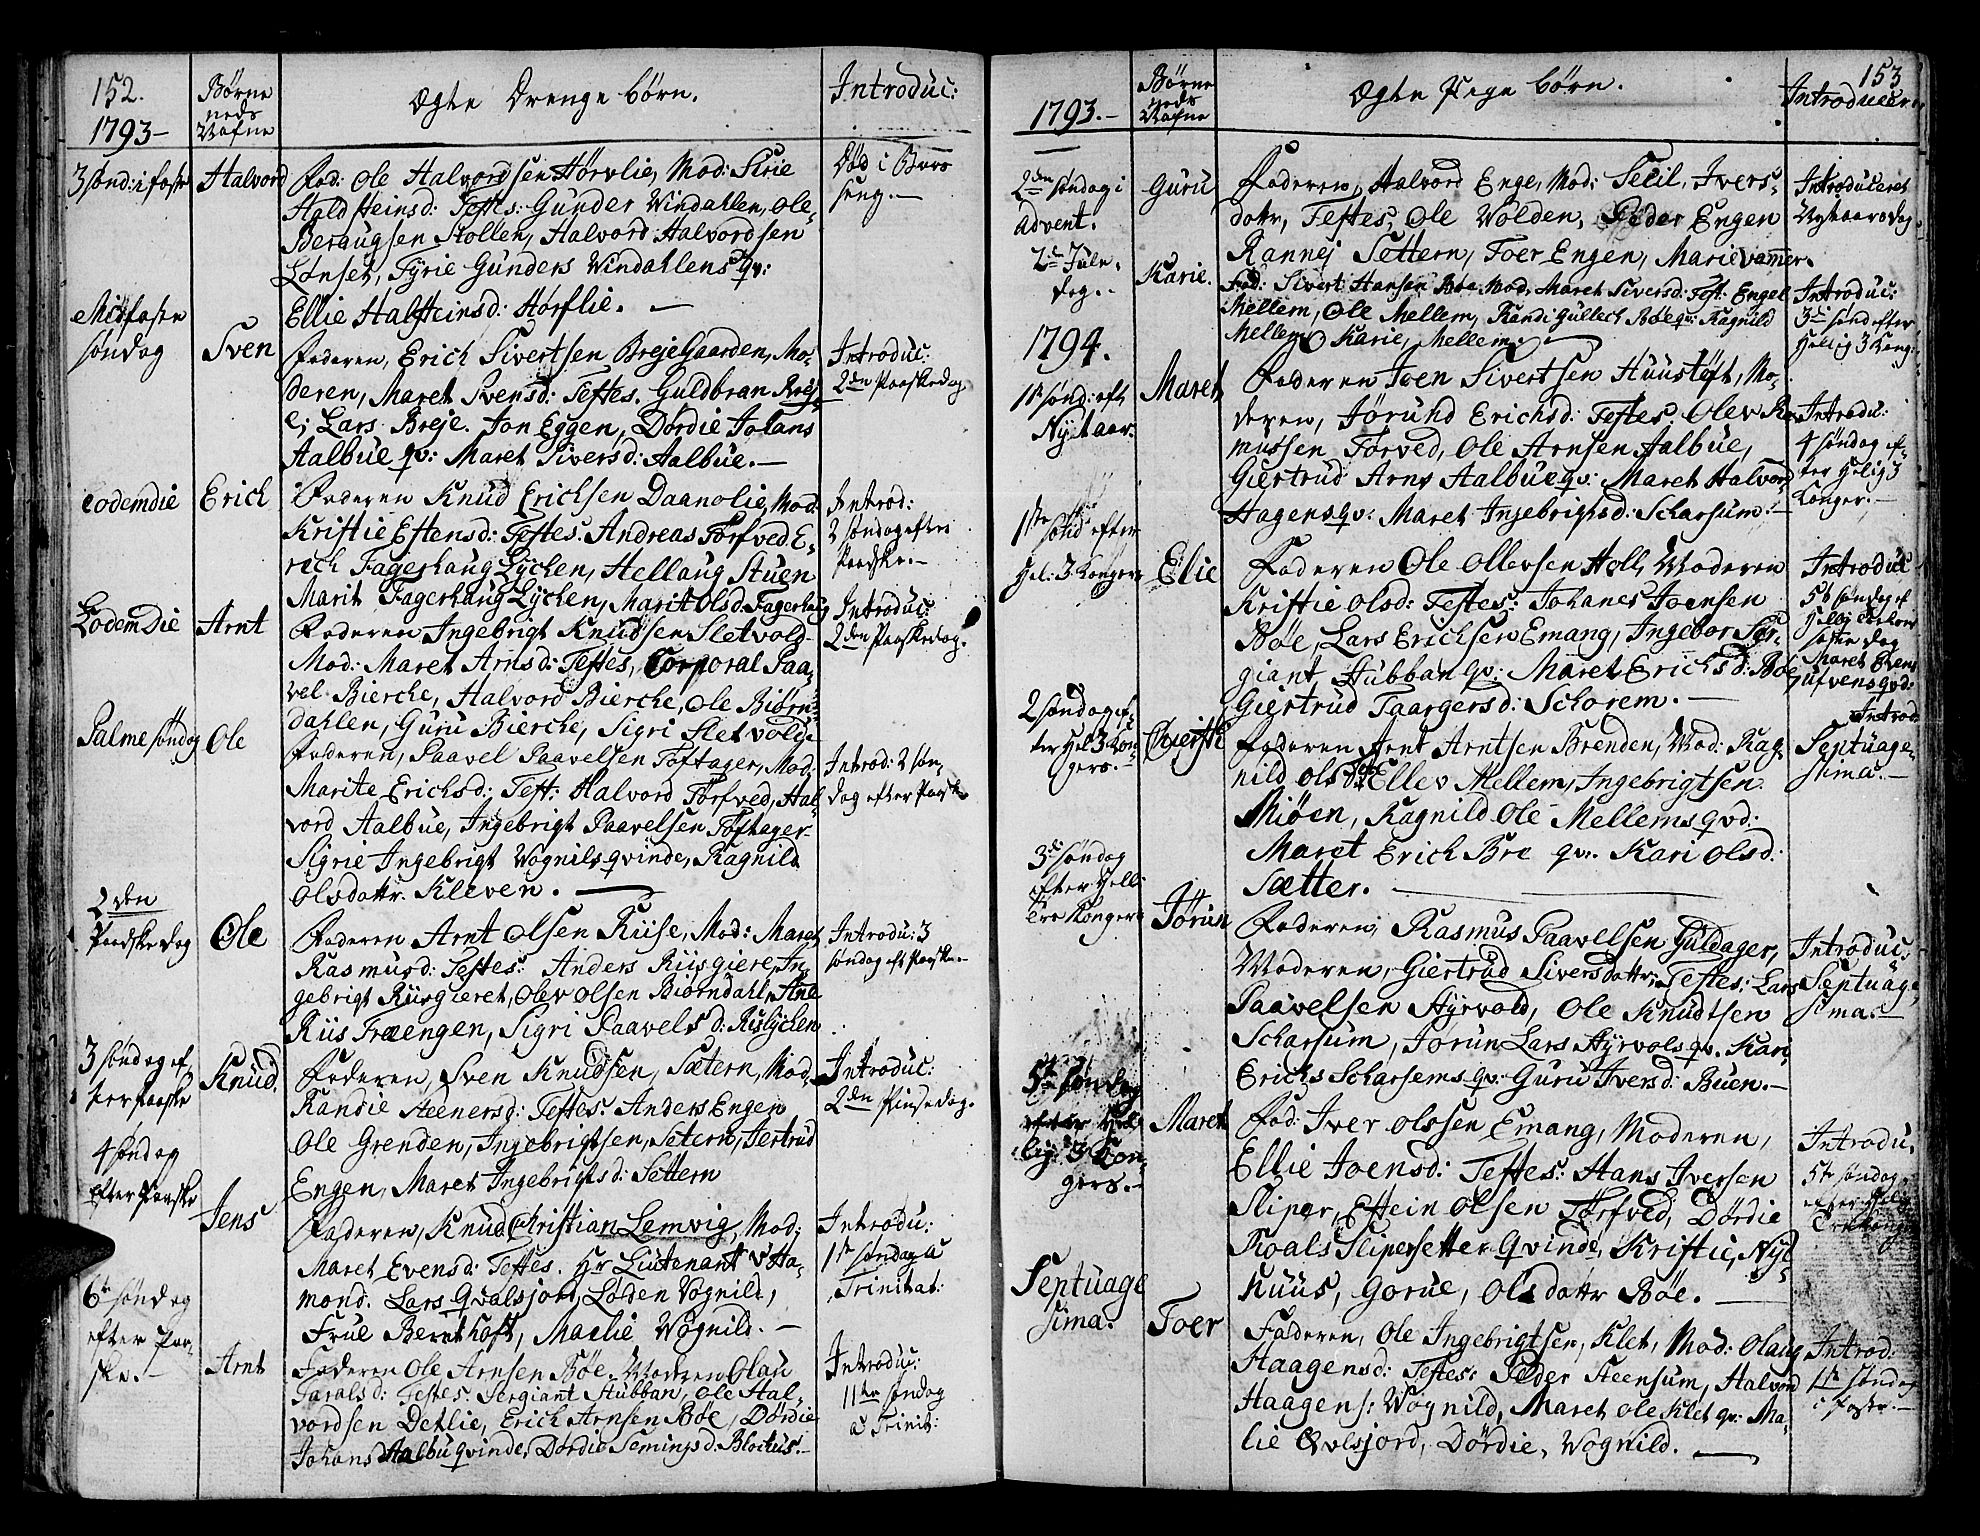 152.
1793-
Børne
neds
Nafne
Ægte Drenge børn.
Introduc:
3 sønd: i faste
Halvord
Fad: Ole Halvordsen Hørvlie, Mod: Sirie
Haldsteinsd: Testes: Gunder Windahlen, Ole
Beraugsen Stollen, Halvord Halvordsen
Lønset, Tyrie Gunders Windahlens qv:
Ellie Halsteinsd: Hørflie. —
Død i Bars
seng. —
Midfaste
søndag
Sven
Faderen, Erich Sivertsen Breje Gaarden, Mo-
deren, Maret Svensd: Testes. Guldbran Rej-
e, Lars Breje. Jon Eggen, Dørdie Johans
Aalbue qv: Maret Siversd: Aalbue. —
Introduc:
2den Paaskedag
eodemdie
Erich
Faderen Knud Erichsen Daanolie, Mod:
Kristie Estensd: Testes. Andreas Torfved E-
rich Fagerhaug Lychen, Hellaug Stuen
Marit Fagerhaug Lychen, Marit Olsd. Fagerhaug
Introd:
2 søndag efter
Paaske. —
Eodemdie
Arnt
Faderen Ingebrigt Knudsen Sletvold
Mod: Maret Arnsd: Testes, Corporal Paa-
vel Bierche, Halvord Bierche, Ole Biørn-
dahlen, Guru Bierche, Sigri Sletvold
Introduc:
2den Paaskedag.
Palmesøndag
Ole
Faderen, Paavel Paavelsen Toftager, Mod:
Marite Erichsd: Test: Halvord Torfved, Hal-
vord Aalbue, Ingebrigt Paavelsen Toftager
Sigrie Ingebrigt Vognils qvinde, Ragnild
Olsdattr. Kleven. —
Introd: 2 søn-
dag efter Paaske
2den
Paaskedag
Ole
Faderen Arnt Olsen Riise, Mod: Maret
Rasmusd: Testes: Anders Riisgiere, In-
gebrigt Riisgieret, Olev Olsen Biørndahl, Ane
Riis Træengen, Sigri Paavels d: Rislychen
Introdu: 3
søndag eft Paaske. —
3 søndag ef-
ter Paaske
Knud.
Faderen, Sven Knudsen, Sætern, Mod-
Randie Steenersd: Testes: Anders Engen
Ole Grenden, Ingebrigtsen, Setern, Jertrud
Engen, Maret Ingebrigtsd: Settern
Introduc:
2den Pinsedag.
4 søndag
efter Paaske
Jens
Faderen, Knud Christian Lemvig, Mod:
Maret Evensd: Testes. Hr Liutenant v Ha-
mond. Lars Qvalsjord, Lorden Vognild,
Frue Bernthoft, Maelie Vognild. —
Introdu:
1ste søndag a
Trinitat:
6te søndag
efter Paa-
ske. —
Arnt
Faderen Ole Arnsen Bøe, Moderen Olau
Taralsd: Testes. Sergiant Stubban, Ole Hal-
vordsen Detlie, Erich Arnsen Bøe, Dørdie
Johans Aalbu qvinde, Dørdie Semingsd. Bloihus. —
Introduc:
11te søndag
a Trinit:
153
1793. —
Børne
neds
Nafne
Ægte Pige børn.
Introducer
2den søndag i
Advent.
Guru
Faderen, Halvord Enge, Mod: Secil, Ivers-
dattr, Testes, Ole Volden, Peder Engen
Rannej Settern, Foer Engen, Marie Vammer.
Introduceret
Nytaarsdag
2de Jule
dag.
Karie.
Fad: Sivert Hansen Bøe Mod. Maret Siversd: Test: Engel
Mellem, Ole Mellem, Randi Gullech Bøe qv: Ragnild
Mellem, Karie, Mellem. —
Introduc:
3de sønd efter
Helig 3 Kong:
1794.
1ste sønd: eft
Nytaar.
Maret
Faderen Joen Sivertsen Huustoft, Mo-
deren, Jørund Erichsd: Testes. Olev Ra-
mussen Torved, Ole Arnsen Aalbue,
Giertrud Arns Aalbue qv: Maret Halvor
Hagens qv: Maret Ingebrigtsd: Scharsum. —
Introdu:
4 søndag ef-
ter Helig 3
Konger. —
1ste sønd efter
Hel: 3 Konger
Elie
Faderen Ole Ollevsen Holl, Moderen
Kristie Olsd: Testes: Johanes Joensen
Bøe, Lars Erichsen Emang, Ingebor Ser-
giant Stubban qv: Maret Erichsd: Bøe
Giertrud Taargersd: Schorem. —
Introduc
5te søndag ef
2 søndag ef-
ter Hel 3 Kon-
gers. —
Faderen Arnt Arntsen Brenden, Mod: Rag-
nild Olsd: Ellev Mellem, Ingebrigtsen
Miøen, Ragnild Ole Mellems qvd:
Maret Erich Bre qv: Kari Olsd:
Sætter. —
Introd:
Septuage-
sima. —
3de søndag
efter Hell:
Tre Konger
Jørun
Faderen, Rasmus Paavelsen Guldager,
Moderen, Giertrud Siversdattr: Testes: Lars
Paavelsen Hyrvold, Ole Knudtsen
Scharsum, Jorun Lars Hyrvols qv. Kari
Erichs Scharsems qv: Guru Iversd: Buen. —
Introduc:
Septuage
sima. —
5te søndag
efter Hel-
lig 3 Kon-
gers. —
Maret
Fad: Iver Olssen, Emang, Moderen,
Ellie Joensd: Testes: Hans Iversen
Sliper, Estein Olsen Torfved, Dørdie
Roals Slipersetter Qvinde, Kristie, Nyl-
huus, Gorue, Olsdattr Bøe. —
Introdu.
5te søndag
efter Hellig
Tre Konger
Septuage
sima.
Foer
Faderen, Ole Ingebrigtsen, Klet, Mod: Olaug
Haagensd: Testes: Peder Steensum, Halvord
Haagens: Vognild, Maret Ole Klet qv: Ma-
lie Qvlsjord, Dørdie, Vognild. —
Introd:
1ste søndag
i faste. —